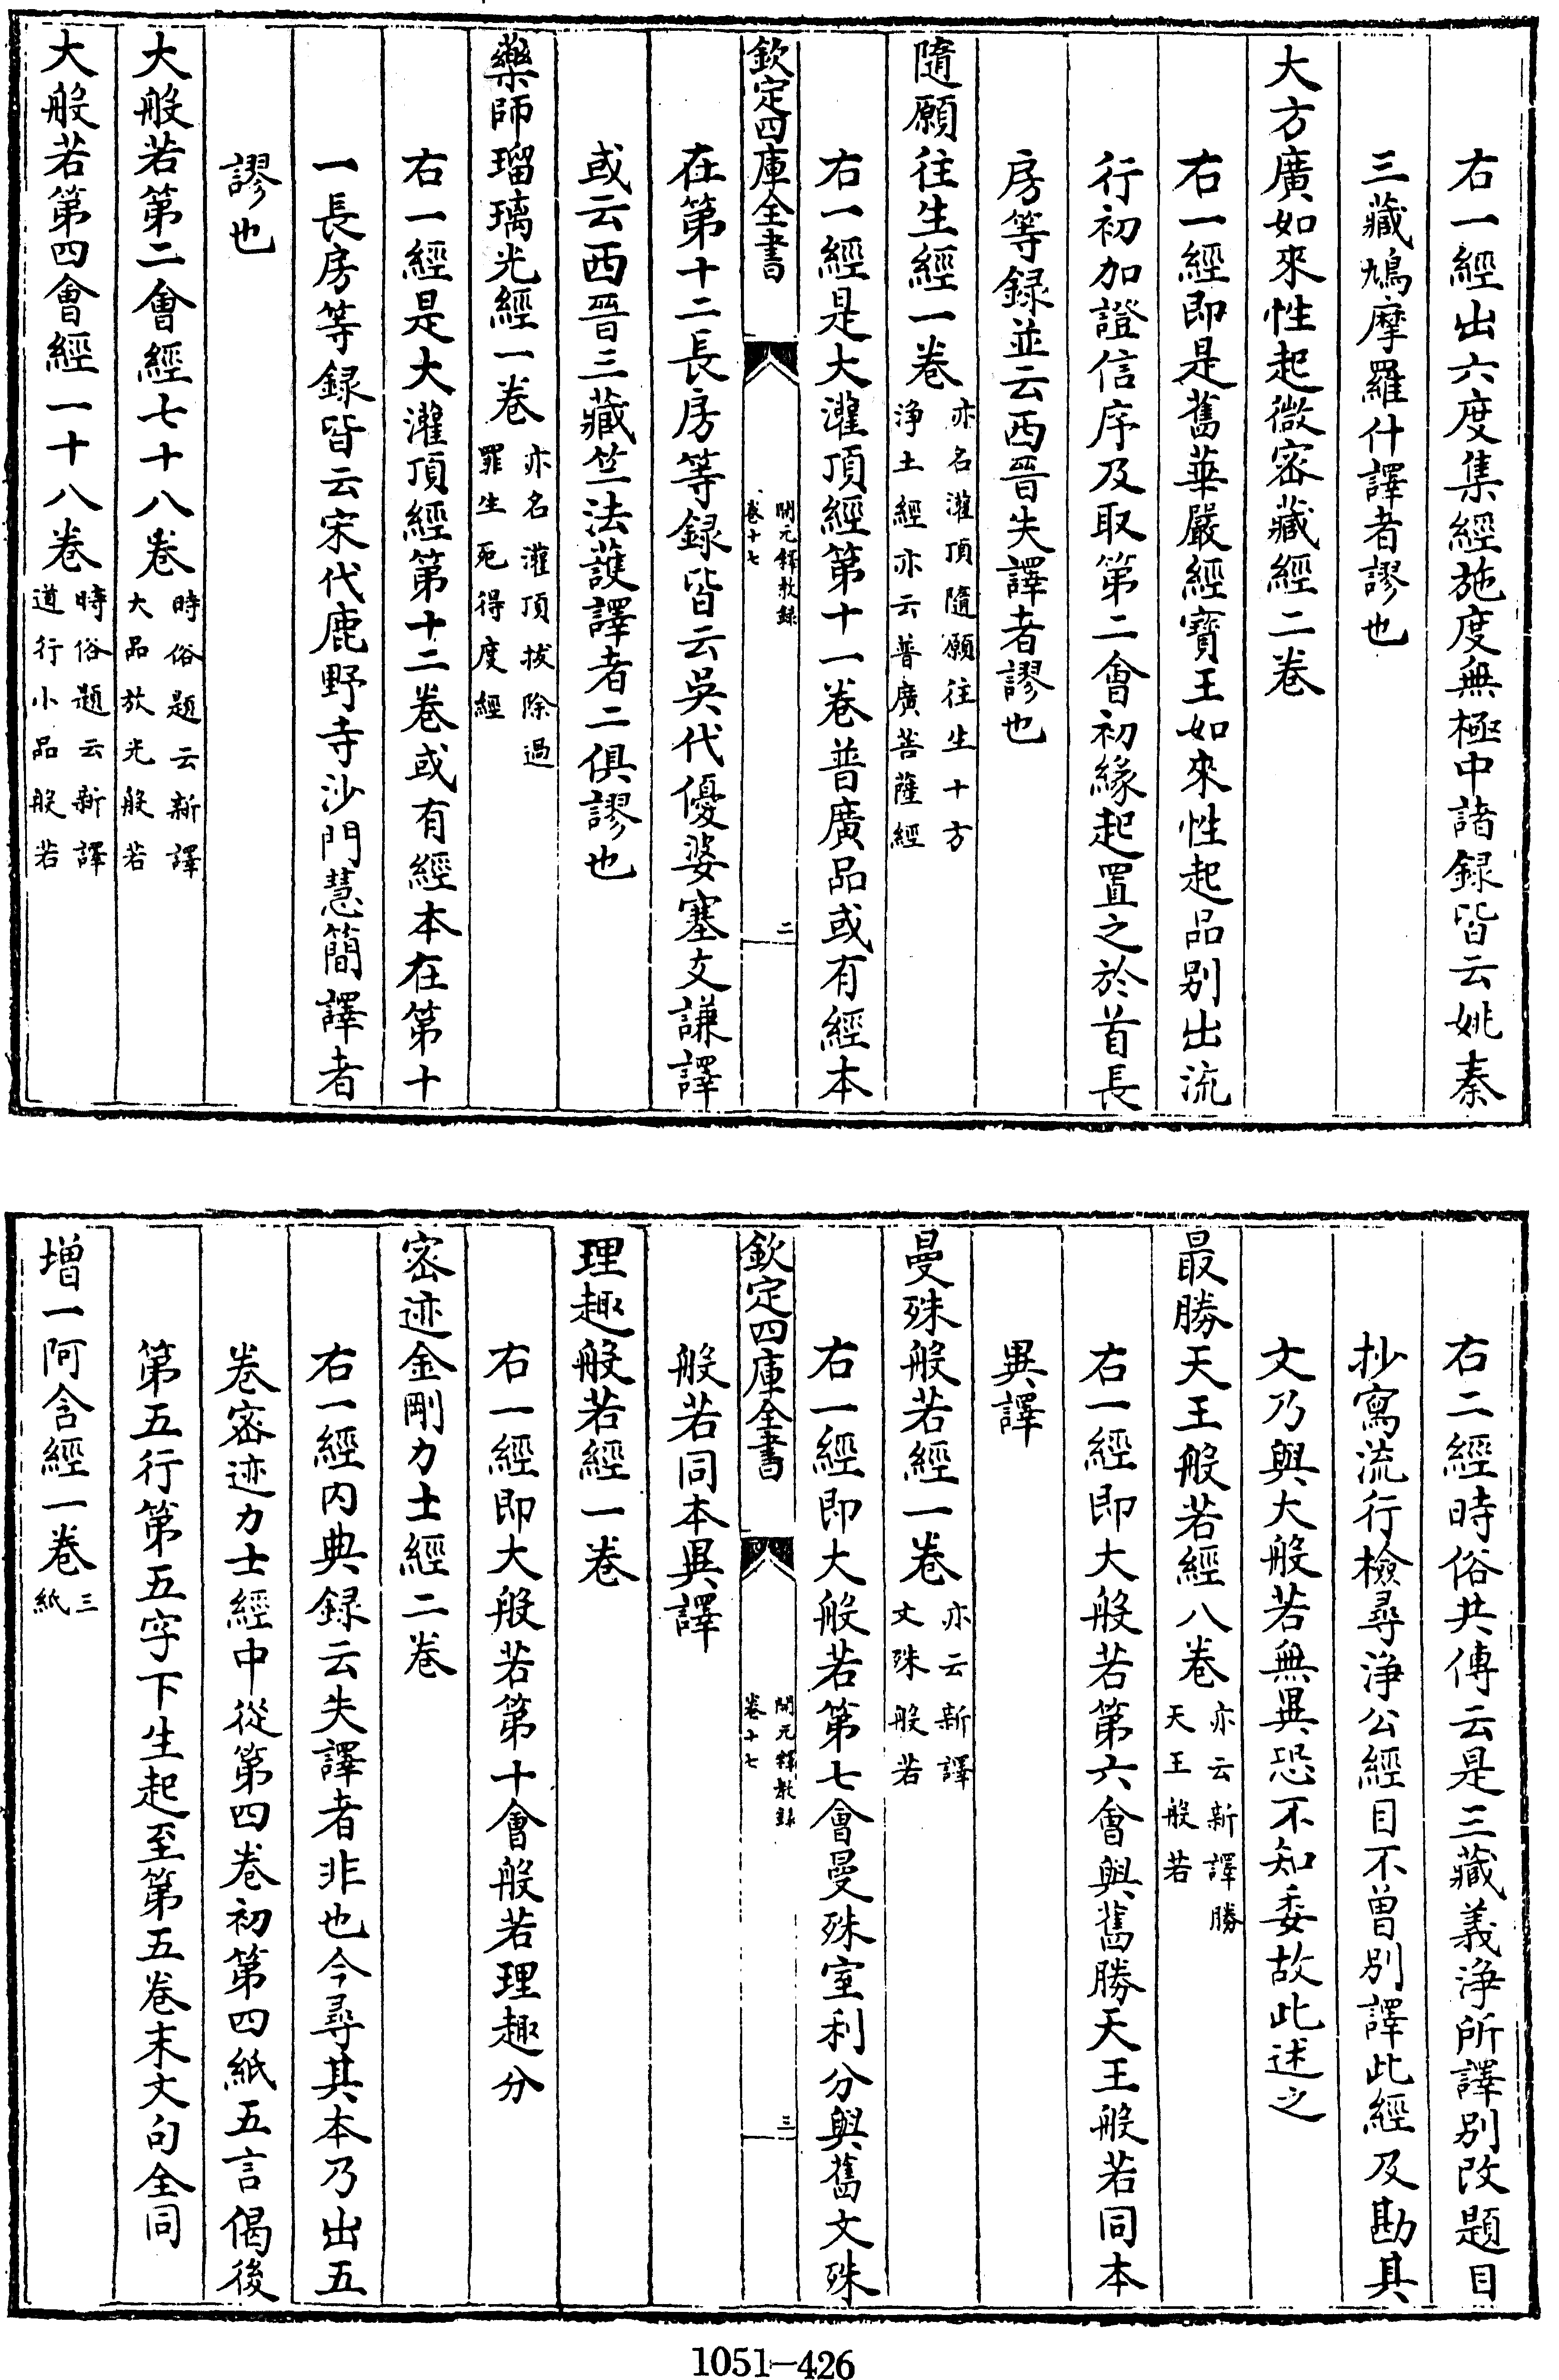 右一經出六度集經施度無極中諸録皆云姚秦
三藏鳩摩羅什譯者謬也
大方廣如來性起微密藏經二卷
右一經即是舊華嚴經寳王如來性起品别出流
行初加證信序及取第二會初緣起置之於首長
房等録並云西晉失譯者謬也
隨願往生經一卷亦名灌頂隨願往生十方
浄土經亦云普廣菩薩經
右一經是大灌頂經第十一卷普廣品或有經本
欽定四庫全書
開元釋教録
卷十七
二
在第十二長房等録皆云吳代優婆塞支謙譯
或云西晉三藏竺法護譯者二俱謬也
藥師瑠璃光經一卷亦名灌頂拔除過
罪生死得度經
右一經是大灌頂經第十二卷或有經本在第十
一長房等録皆云宋代鹿野寺沙門慧簡譯者
謬也
大般若第二會經七十八卷時俗題云新譯
大品放光般若
大般若第四會經一十八卷時俗題云新譯
道行小品般若
右二經時俗共傳云是三藏義浄所譯别改題目
抄寫流行檢尋浄公經目不曾别譯此經及勘其
文乃與大般若無異恐不知委故此述之
最勝天王般若經八卷亦云新譯勝
天王般若
右一經即大般若第六會與舊勝天王般若同本
異譯
曼殊般若經一卷亦云新譯
文殊般若
右一經即大般若第七會曼殊室利分與舊文殊
欽定四庫全書
開元釋教録
卷十七
三
般若同本異譯
理趣般若經一卷
右一經即大般若第十會般若理趣分
密迹金剛力士經二卷
右一經内典録云失譯者非也今尋其本乃出五
卷密迹力士經中從第四卷初第四紙五言偈後
第五行第五字下生起至第五卷末文句全同
増一阿含經一卷三
紙
1051-426